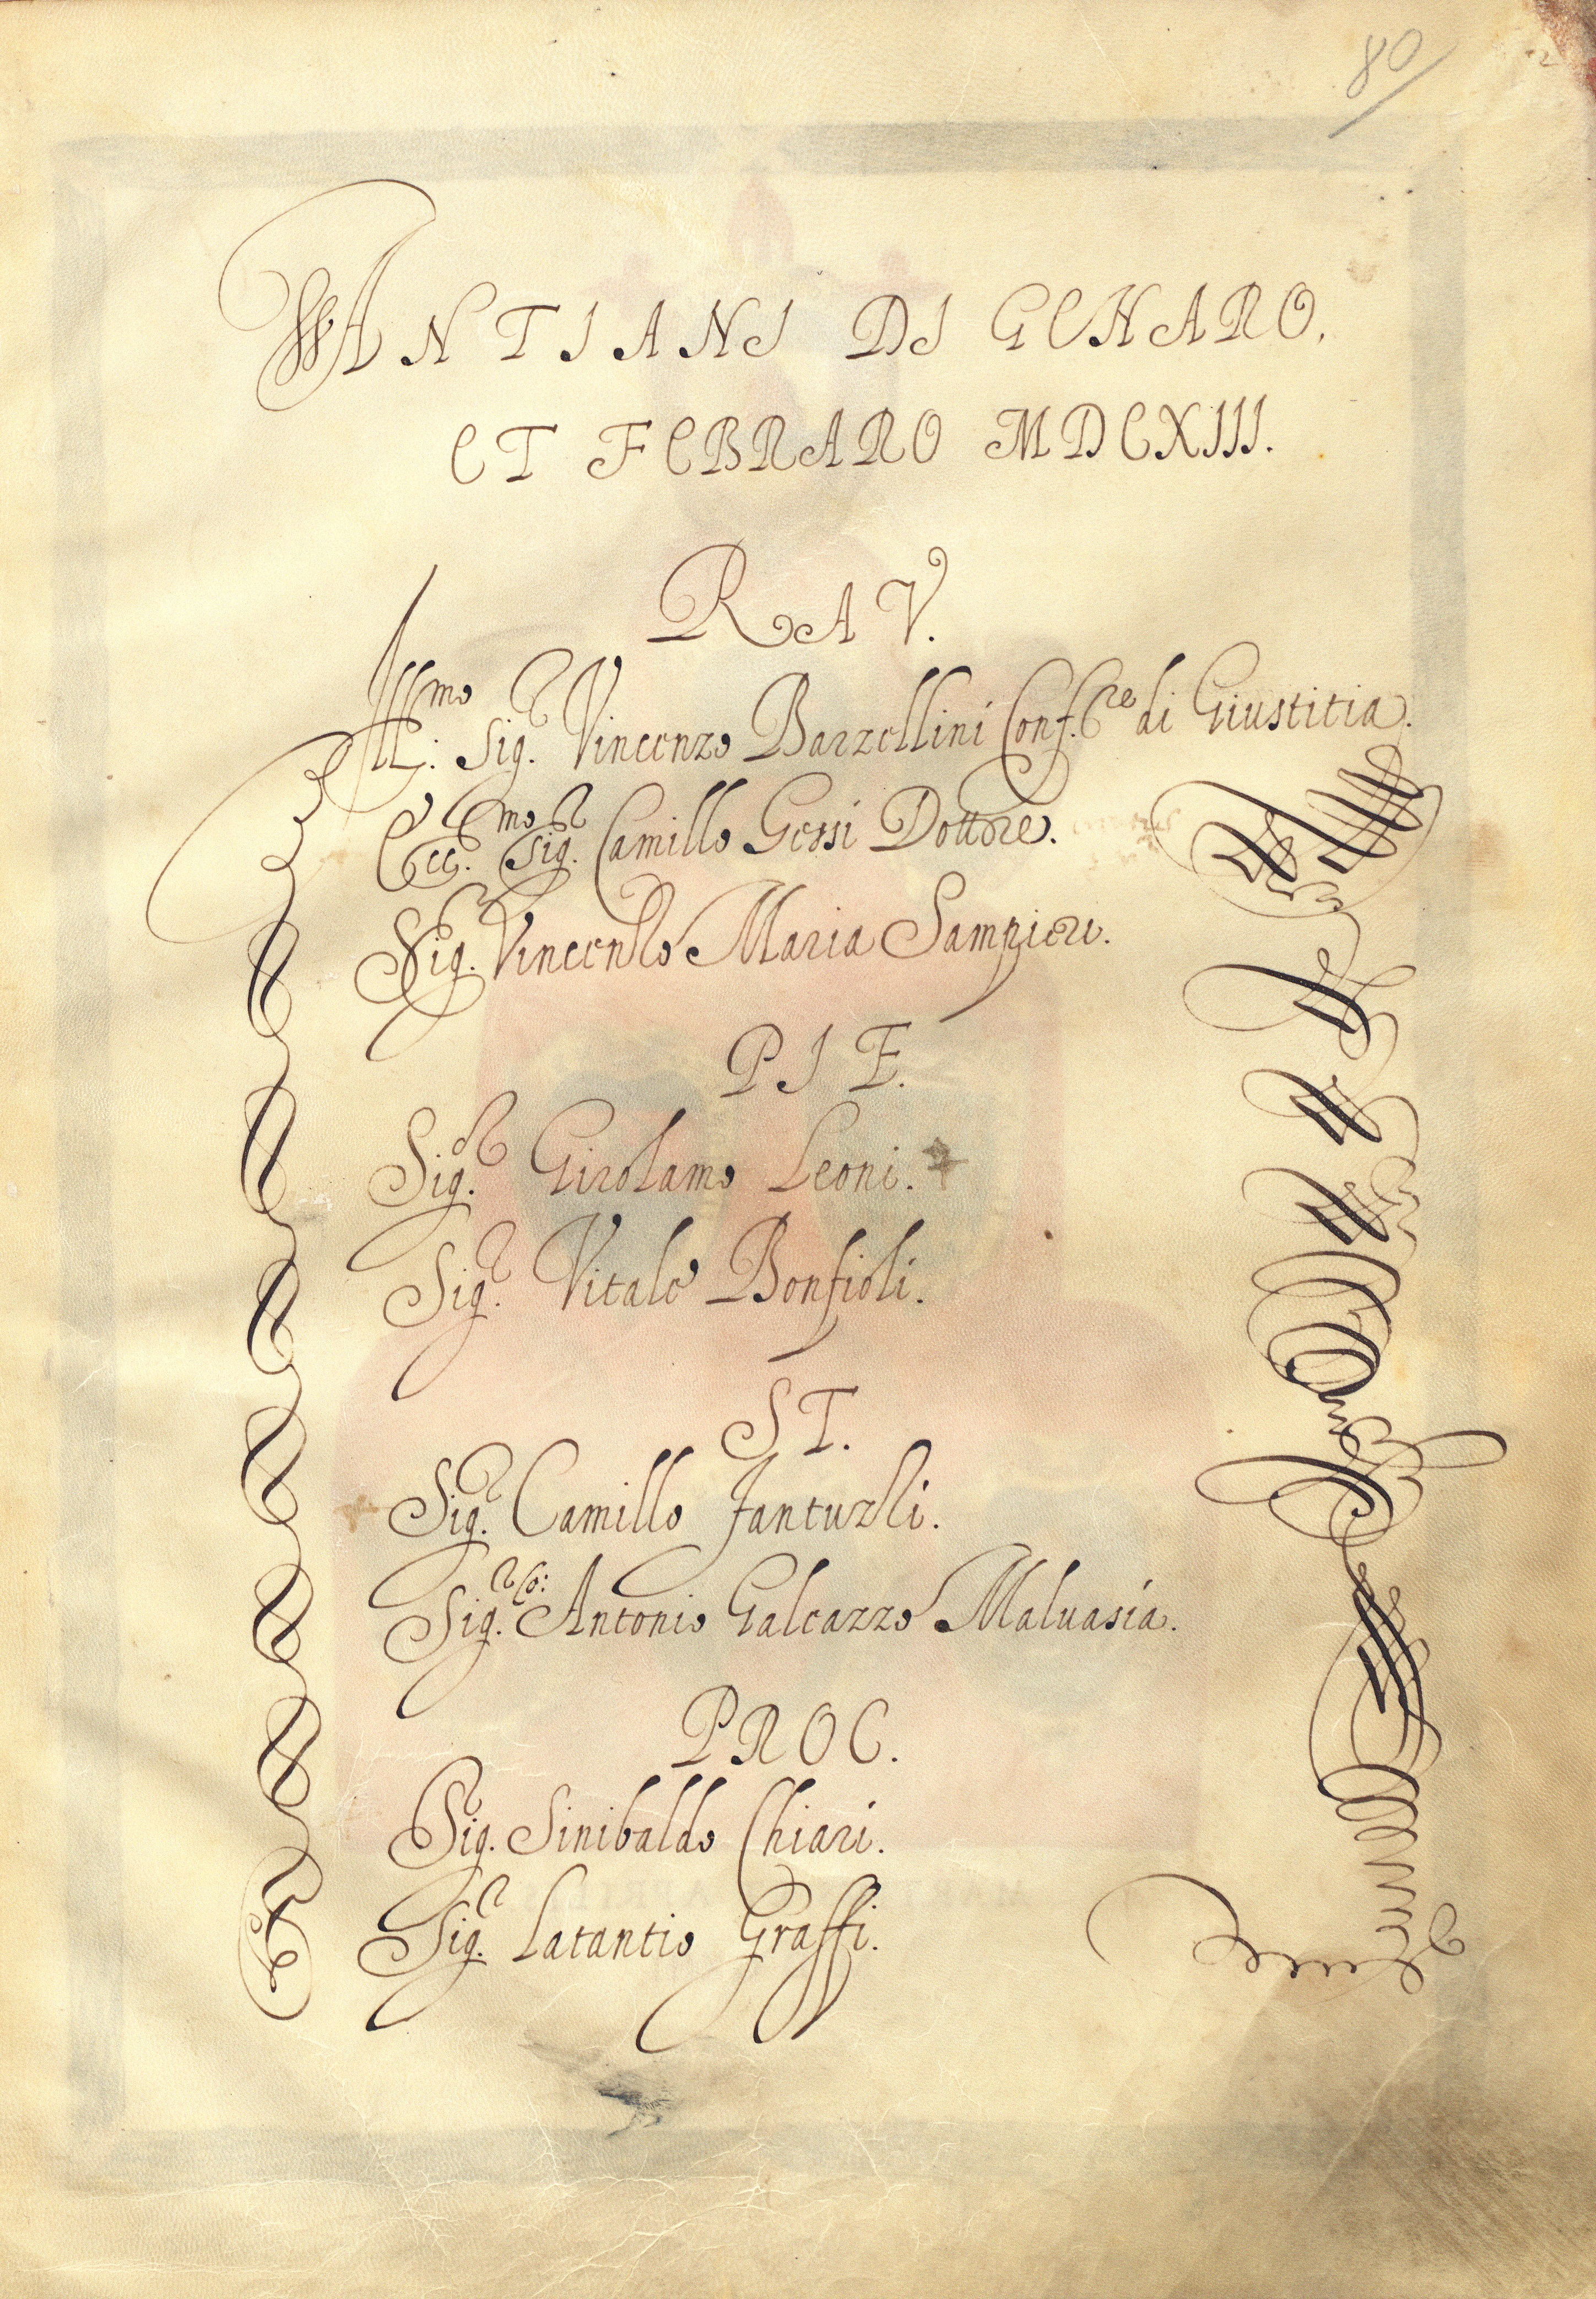 80
ANTIANI DI GENARO,
ET FEBRARO MDCXIII.
RAV.
Ill.mo Sig.r Vincenzo Barzellini Conf.re di Giustitia.
Ecc.mo Sig.r Camillo Gessi Dottore.
Sig.r Vincenzo Maria Sampieri.
PIE.
Sig.r Girolamo Leoni.
Sig.r Vitale Bonfioli.
ST.
Sig.r Camillo Fantuzzi.
Sig.r Co: Antonio Galeazzo Maluasia.
PROC.
Sig. Sinibaldo Chiari.
Sig.r Latantio Graffi.